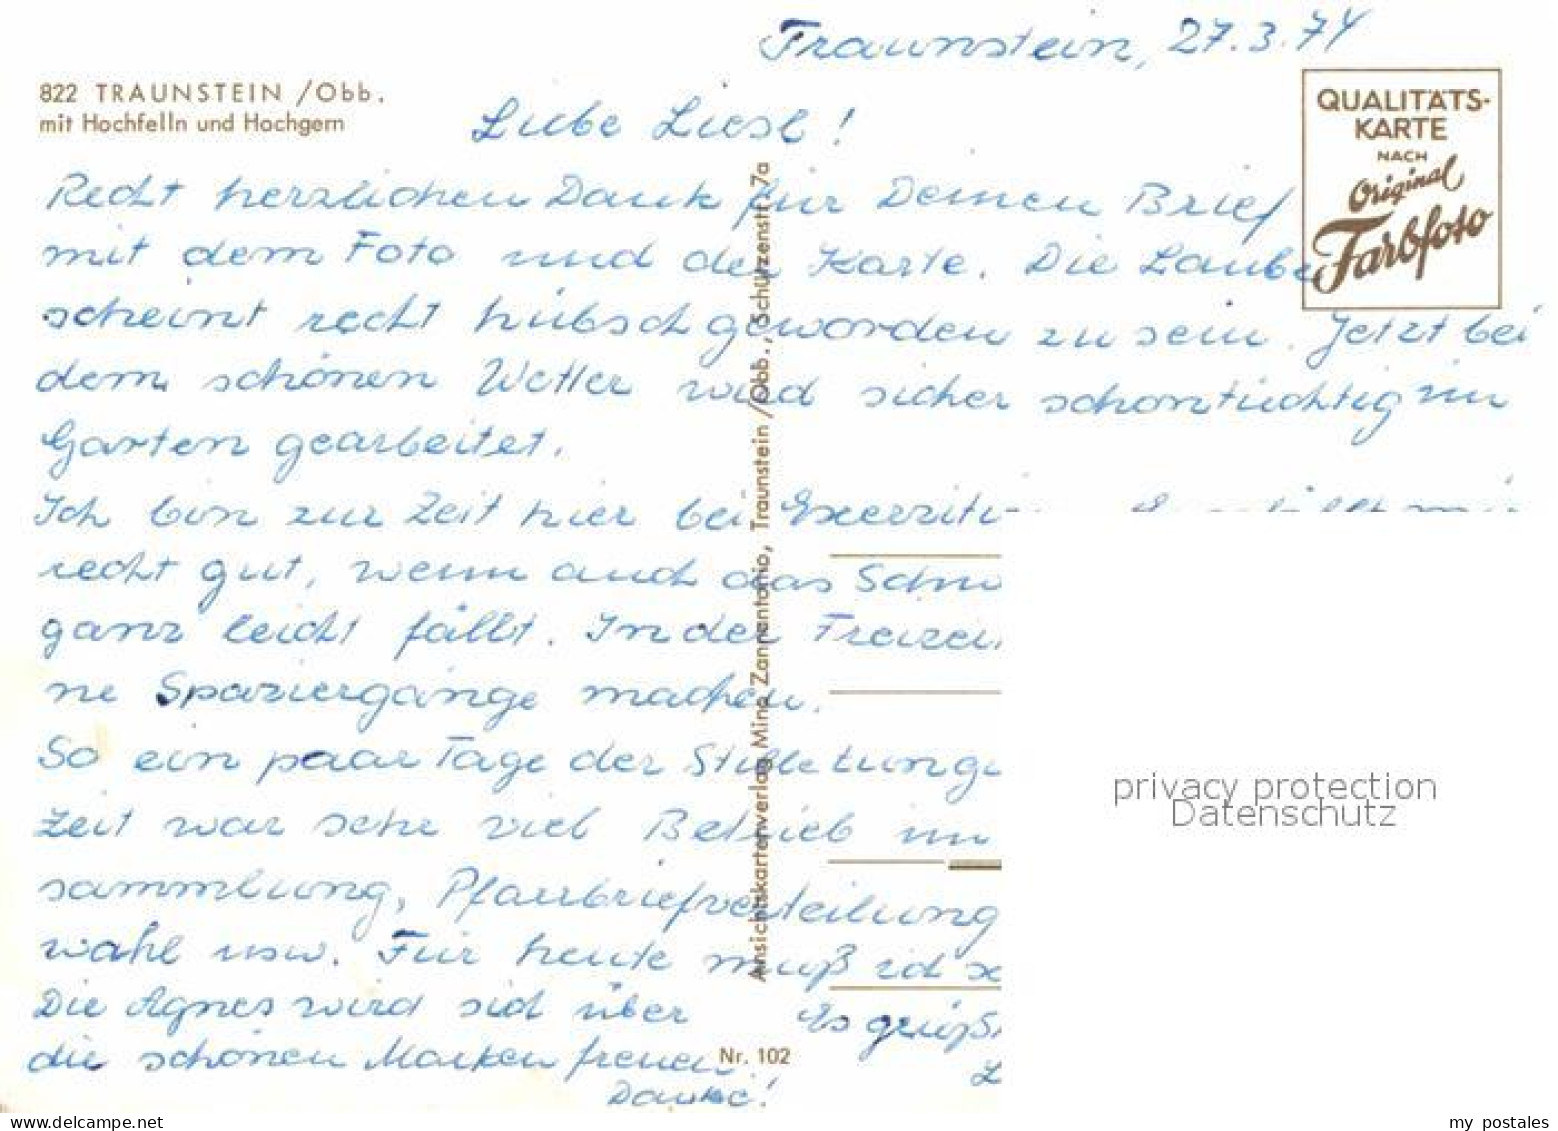 Traunstein, 27.3.74
822 TRAUNSTEIN /Obb.
mit Hochfelln und Hochgern
QUALITÄTS-
KARTE
NACH
Original
Farbfoto
Liebe Liesl!
Recht herzlichen Dank für Deinen Brief
mit dem Foto und der Karte. Die Laube
scheint recht hübsch geworden zu sein. Jetzt bei
dem schönen Wetter wird sicher schon tüchtig im
Garten gearbeitet.
Ich bin zur Zeit hier bei
recht gut, wenn auch das
ganz leicht fällt. In der
ne Spaziergänge machen.
So ein paar Tage der Stille
Zeit war sehr viel Betrieb im
sammlung, Pfarrbriefverteilung
wahl usw. Für heute muß ich
Die Agnes wird sich über
die schönen Marken freuen.
Danke!
Es grüßt
L
Ansichtskartenverlag Mino Zannantonio, Traunstein/Obb., Schützenstr. 7a
Nr. 102
privacy protection
Datenschutz
www.delcampe.net
my_postales